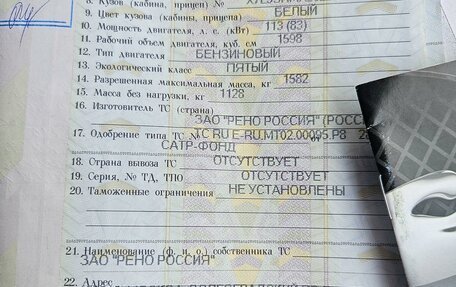 8. Кузов (кабина, прицеп) №
9. Цвет кузова (кабины, прицепа) БЕЛЫЙ
10. Мощность двигателя, л. с. (кВт) 113 (83)
11. Рабочий объем двигателя, куб. см 1598
12. Тип двигателя БЕНЗИНОВЫЙ
13. Экологический класс ПЯТЫЙ
14. Разрешенная максимальная масса, кг 1582
15. Масса без нагрузки, кг 1128
16. Изготовитель ТС (страна)
ЗАО "РЕНО РОССИЯ" (РОСС
17. Одобрение типа ТС № ТС RU E-RU.MT02.00095.P8 от
САТР-ФОНД
18. Страна вывоза ТС ОТСУТСТВУЕТ
19. Серия, № ТД, ТПО ОТСУТСТВУЕТ
20. Таможенные ограничения НЕ УСТАНОВЛЕНЫ
21. Наименование (ф. и. о.) собственника ТС
ЗАО "РЕНО РОССИЯ"
22. Адрес